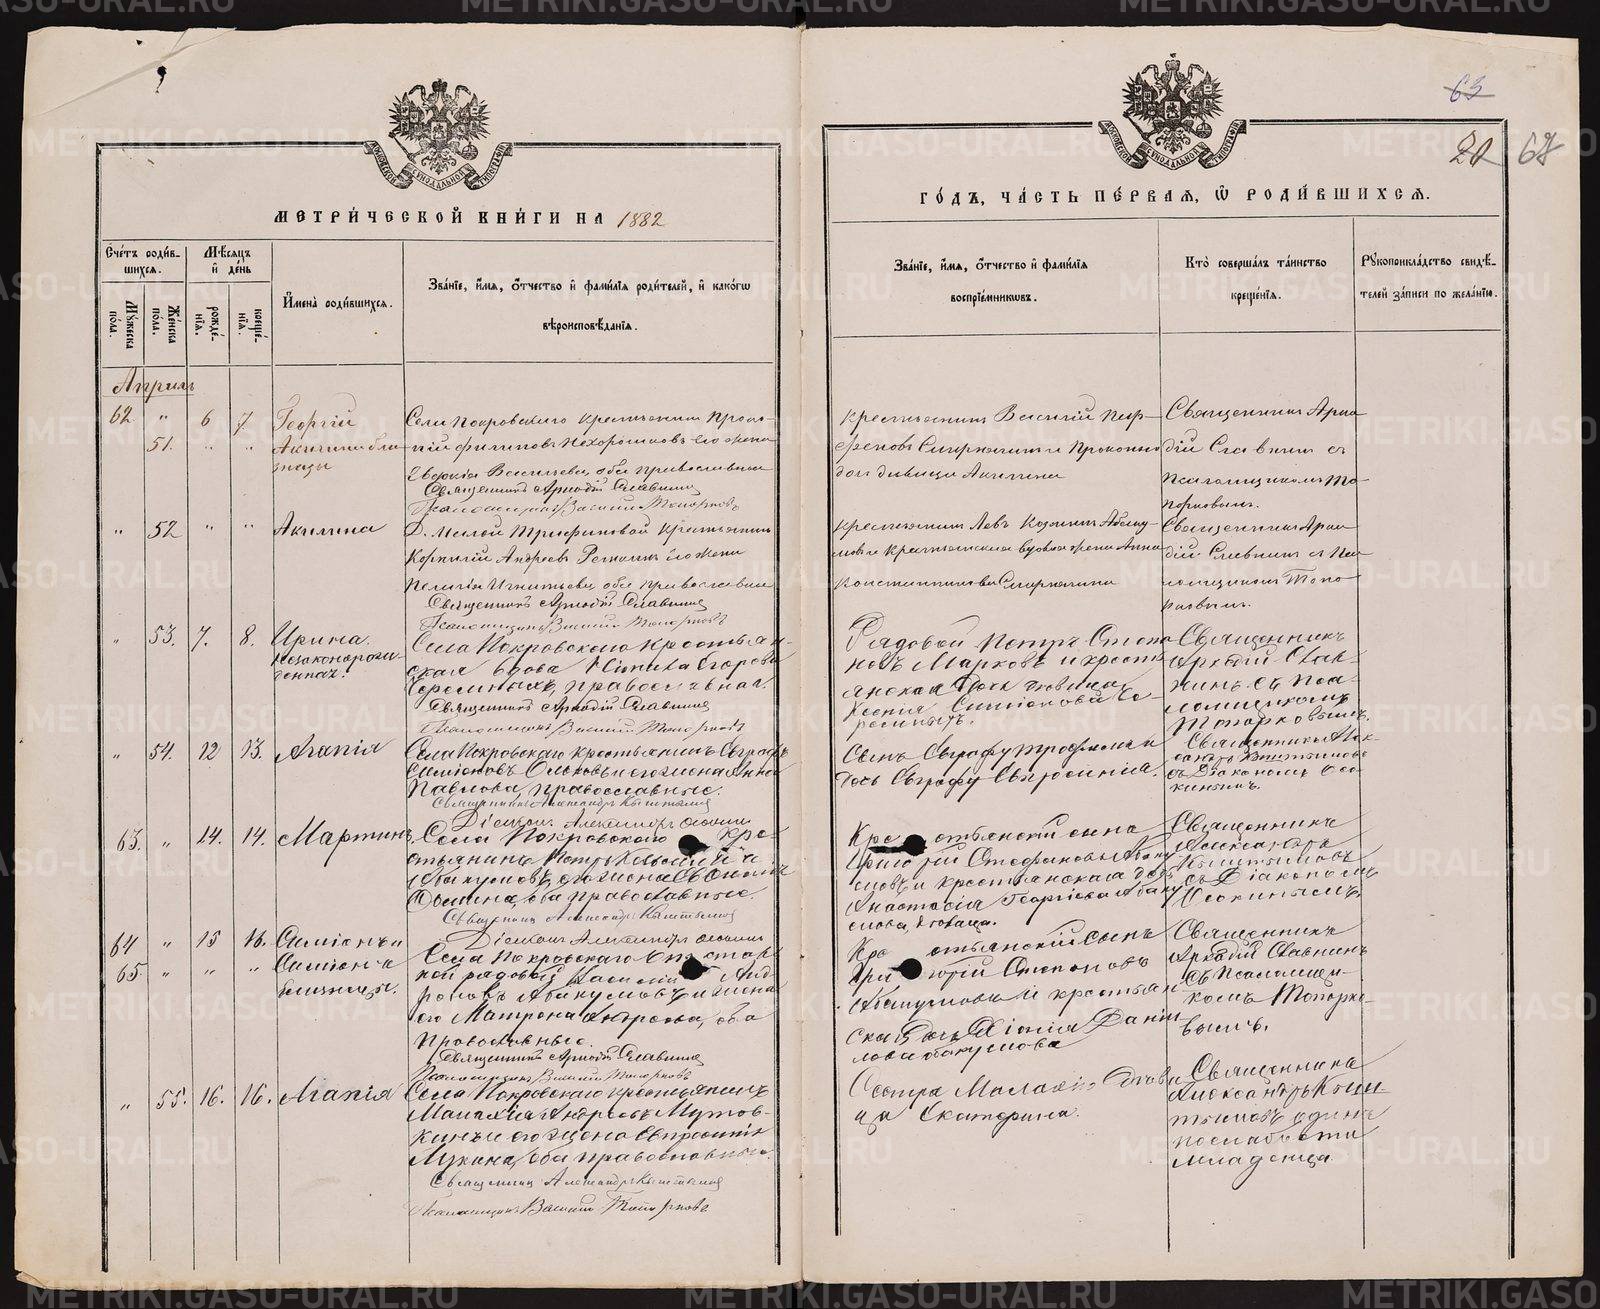 МЕТРИ́ЧЕСКОЙ КНИ́ГИ НА 1882
Сче́тъ роди́в-
шихся.
Мѣ́сяцъ
и҆ де́нь
Мꙋ́жеска
по́ла.
Же́нска
по́ла.
рожде́-
нїѧ.
креще́-
нїѧ.
И҆мена̀ роди́вшихся.
Зва́нїе, и҆́мѧ, ѻ҆́тчество и҆ фами́лїѧ роди́телей, и҆ како́гѡ
вѣроисповѣ́данїѧ.
Апрѣль
62 " 6 7 Георгій
51. " " Акилина близнецы
Села Покровскаго крестьянинъ Проко-
пій Филиповъ Нехорошковъ его жена
Евдокія Васильева, оба православные
Священникъ Аркадій Славнинъ
Псаломщикъ Василій Топорковъ
" 52 " " Акилина
Д. Малой Трифоновой крестьянинъ
Корнилій Андреевъ его жена
Пелагія Игнатьева оба православные
Священникъ Аркадій Славнинъ
Псаломщикъ Василій Топорковъ
" 53. 7. 8. Ирина
незаконорож-
денная.
Села Покровскаго крестьян-
ская вдова Егорова
православная.
Священникъ Аркадій Славнинъ
Псаломщикъ Василій Топорковъ
" 54. 12 13. Агапія
Села Покровскаго крестьянинъ Евграфъ
Симіоновъ и его жена Анна
Павлова, православные.
Священникъ Александръ Кыштымовъ
Діаконъ Александръ
63. " 14. 14. Мартинъ.
Села Покровскаго кре-
стьянинъ Петръ
Абакумовъ, его жена
Фомина, оба православные.
Священникъ Александръ Кыштымовъ
Діаконъ Александръ
64 " 15 16. Симіонъ и
65. " " " Симіонъ
близнецы.
Села Покровскаго отстав-
ной рядовой Василій Анд-
роновъ Абакумовъ и жена
его Матрона Андреева, оба
Православные.
Священникъ Аркадій Славнинъ
Псаломщикъ Василій Топорковъ
" 55. 16. 16. Агапія
Села Покровскаго крестьянинъ
Малахія Андреевъ Мутов-
кинъ и его жена Евпраксія
Лукина, оба православные.
Священникъ Александръ Кыштымовъ
Псаломщикъ Василій Топорковъ
63
20 67
ГО́ДЪ, ЧА́СТЬ ПЕ́РВАѦ, Ѡ҆ РОДИ́ВШИХСѦ.
Зва́нїе, и҆́мѧ, ѻ҆́тчество и҆ фами́лїѧ
воспрїе́мникѡвъ.
Кто̀ соверша́лъ та́инство
креще́нїѧ.
Рꙋкоприкла́дство свидѣ́-
телей за́писи по жела́нїю.
крестьянинъ Василій Пар-
феновъ Смирнягинъ и Прокопье
дочь дѣвица Акилина
Священникъ Арка-
дій Славнинъ съ
псаломщикомъ То-
порковымъ.
крестьянинъ Левъ Козминъ Абаку-
мовъ и крестьянская вдова жена Анна
Константинова Смирнягина
Священникъ Арка-
дій Славнинъ съ Пса-
ломщикомъ Топо-
рковымъ.
Рядовой Петръ Степа-
новъ Марковъ и кресть-
янская Дочь дѣвица
Ксенія Симіонова
Священникъ
Аркадій Слав-
нинъ съ Пса-
ломщикомъ
Топорковымъ.
Сынъ Евграфу Трофимъ и
дочь Евграфу Евфросинія.
Священникъ Алек-
сандръ Кыштымовъ
съ Діакономъ
Крестьянскій сынъ
Григорій Стефановъ Абаку-
мовъ и крестьянская дочь
Анастасія Георгіева Абаку-
мова, дѣвица.
Священникъ
Александръ
Кыштымовъ
съ Діакономъ
Крестьянскій сынъ
Григорій Степановъ
Абакумовъ и крестьян-
ская Дочь Хіонія Дани-
лова Абакумова
Священникъ
Аркадій Славнинъ
съ Псаломщи-
комъ Топорко-
вымъ.
Сестра Малахія дѣви-
ца Екатерина.
Священникъ
Александръ Кыш-
тымовъ одинъ
по слабости
младенца.
METRIKI.GASO-URAL.RU